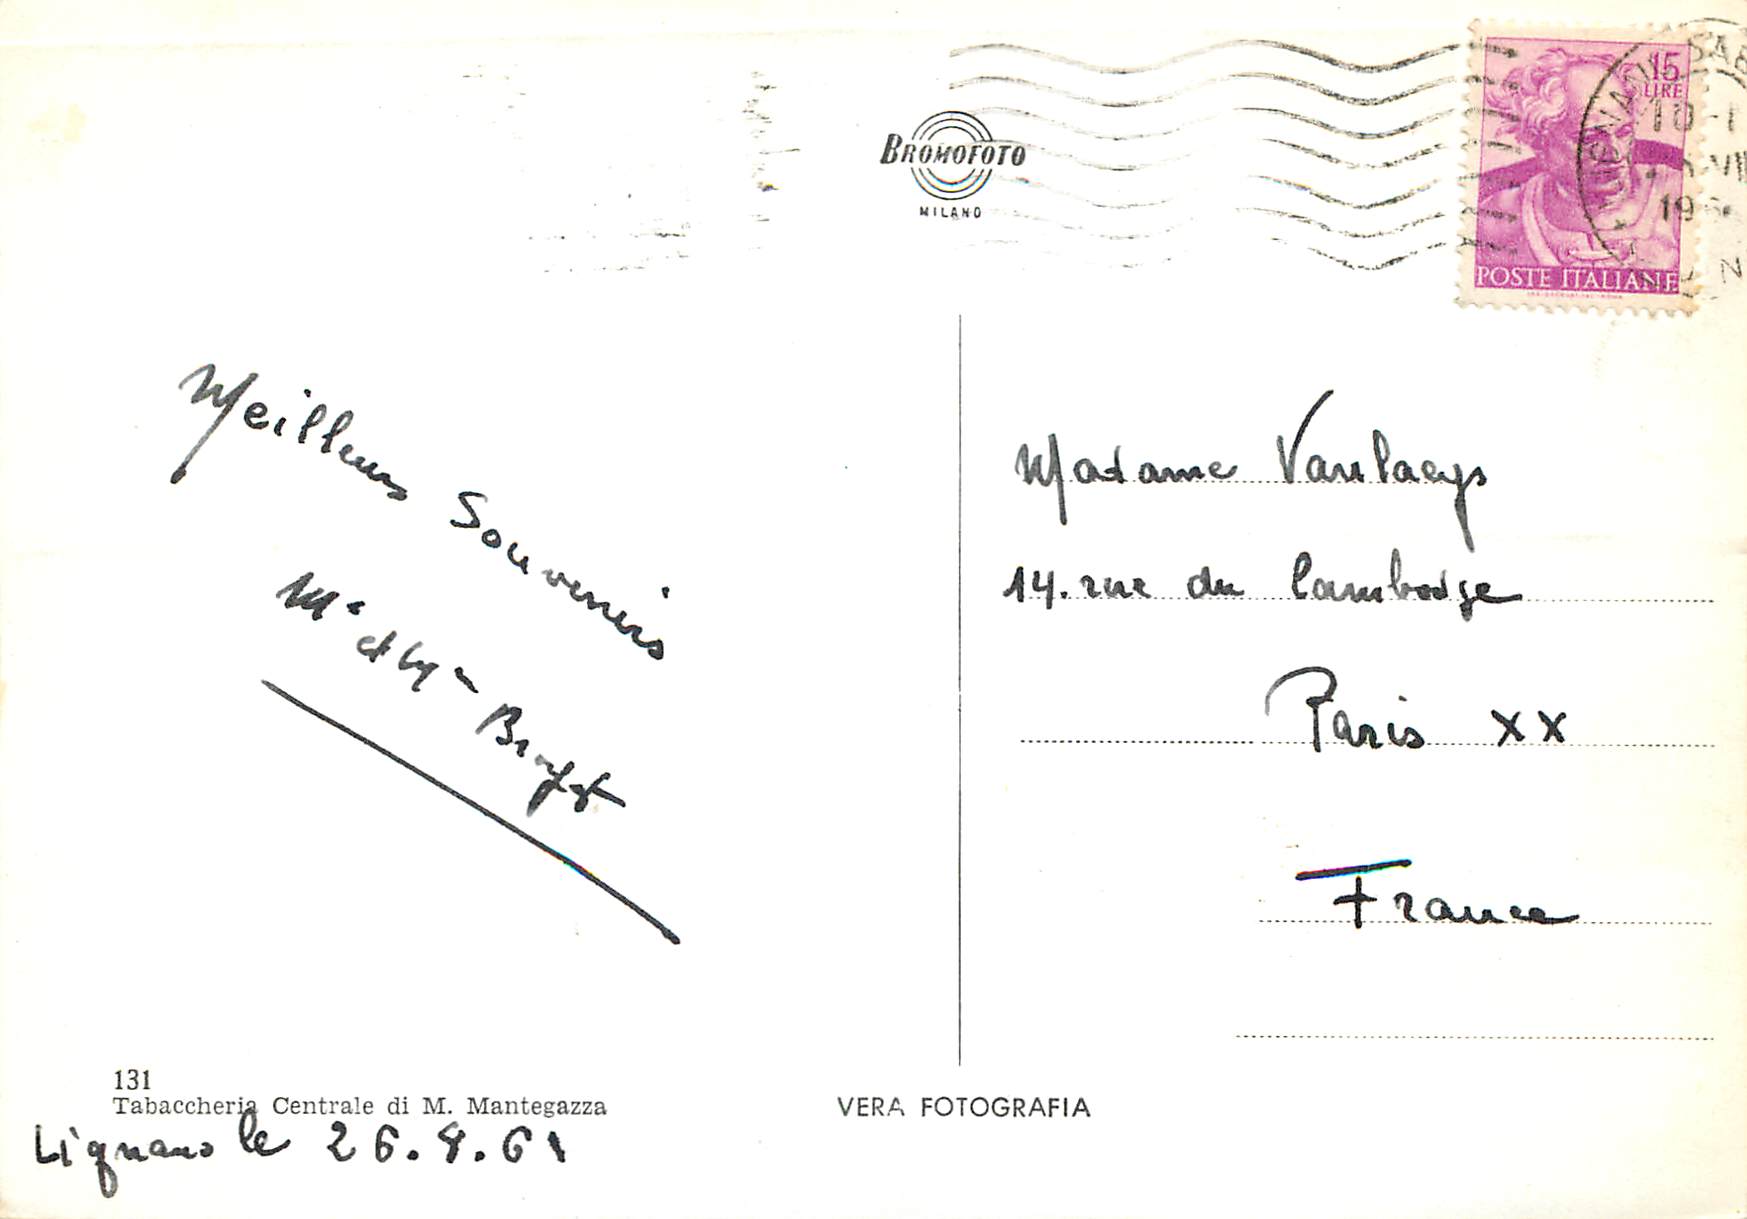 BROMOFOTO
MILANO
15
LIRE
POSTE ITALIANE
Meilleurs Souvenirs
Mr et Me
Madame Vanlaeys
14. rue du Cambodge
Paris XX
France
131
Tabaccheria Centrale di M. Mantegazza
VERA FOTOGRAFIA
Lignano le 26.8.61